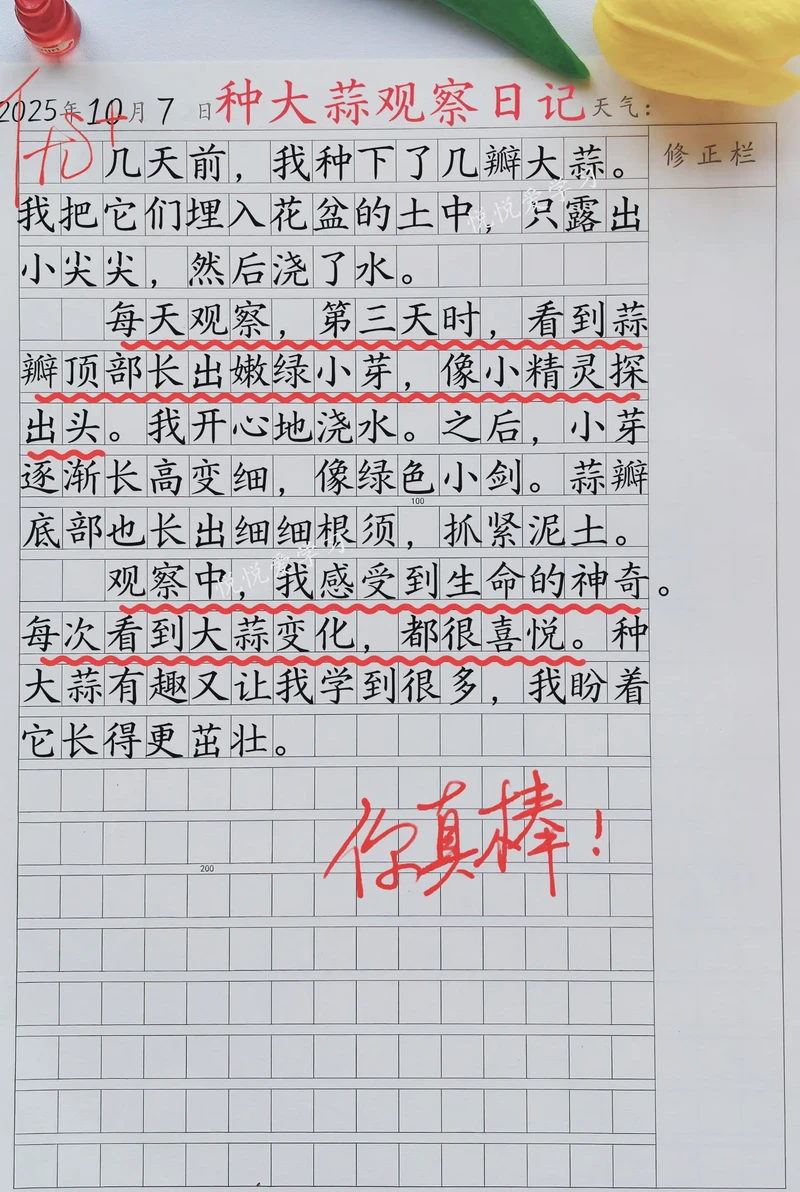 2025年10月7日种大蒜观察日记天气：
优+
修正栏
几天前，我种下了几瓣大蒜。
我把它们埋入花盆的土中，只露出
小尖尖，然后浇了水。
每天观察，第三天时，看到蒜
瓣顶部长出嫩绿小芽，像小精灵探
出头。我开心地浇水。之后，小芽
逐渐长高变细，像绿色小剑。蒜瓣
100
底部也长出细细根须，抓紧泥土。
观察中，我感受到生命的神奇。
每次看到大蒜变化，都很喜悦。种
大蒜有趣又让我学到很多，我盼着
它长得更茁壮。
你真棒！
200
悦悦爱学习
悦悦爱学习